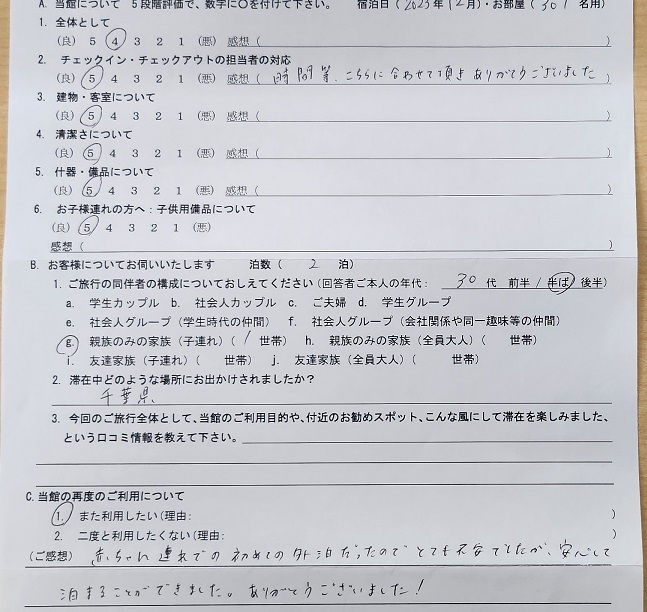 A. 当館について 5段階評価で、数字に○を付けて下さい。 宿泊日（2023年12月）・お部屋（301 名用）
1. 全体として
（良） 5 4 3 2 1 （悪） 感想（ ）
2. チェックイン・チェックアウトの担当者の対応
（良） 5 4 3 2 1 （悪） 感想（ 時間等、こちらに合わせて頂き ありがとうございました ）
3. 建物・客室について
（良） 5 4 3 2 1 （悪） 感想（ ）
4. 清潔さについて
（良） 5 4 3 2 1 （悪） 感想（ ）
5. 什器・備品について
（良） 5 4 3 2 1 （悪） 感想（ ）
6. お子様連れの方へ：子供用備品について
（良） 5 4 3 2 1 （悪）
感想（ ）
B. お客様についてお伺いいたします 泊数（ 2 泊）
1. ご旅行の同伴者の構成についておしえてください（回答者ご本人の年代： 30 代 前半 / 半ば/ 後半）
a. 学生カップル b. 社会人カップル c. ご夫婦 d. 学生グループ
e. 社会人グループ（学生時代の仲間） f. 社会人グループ（会社関係や同一趣味等の仲間）
g. 親族のみの家族（子連れ）（ 1 世帯） h. 親族のみの家族（全員大人）（ 世帯）
i. 友達家族（子連れ）（ 世帯）j. 友達家族（全員大人）（ 世帯）
2. 滞在中どのような場所にお出かけされましたか？
千葉県
3. 今回のご旅行全体として、当館のご利用目的や、付近のお勧めスポット、こんな風にして滞在を楽しみました、
という口コミ情報を教えて下さい。
C. 当館の再度のご利用について
1. また利用したい（理由： ）
2. 二度と利用したくない（理由： ）
（ご感想） 赤ちゃん連れでの初めての外泊だったのでとても不安でしたが、安心して
泊まることができました。ありがとうございました！